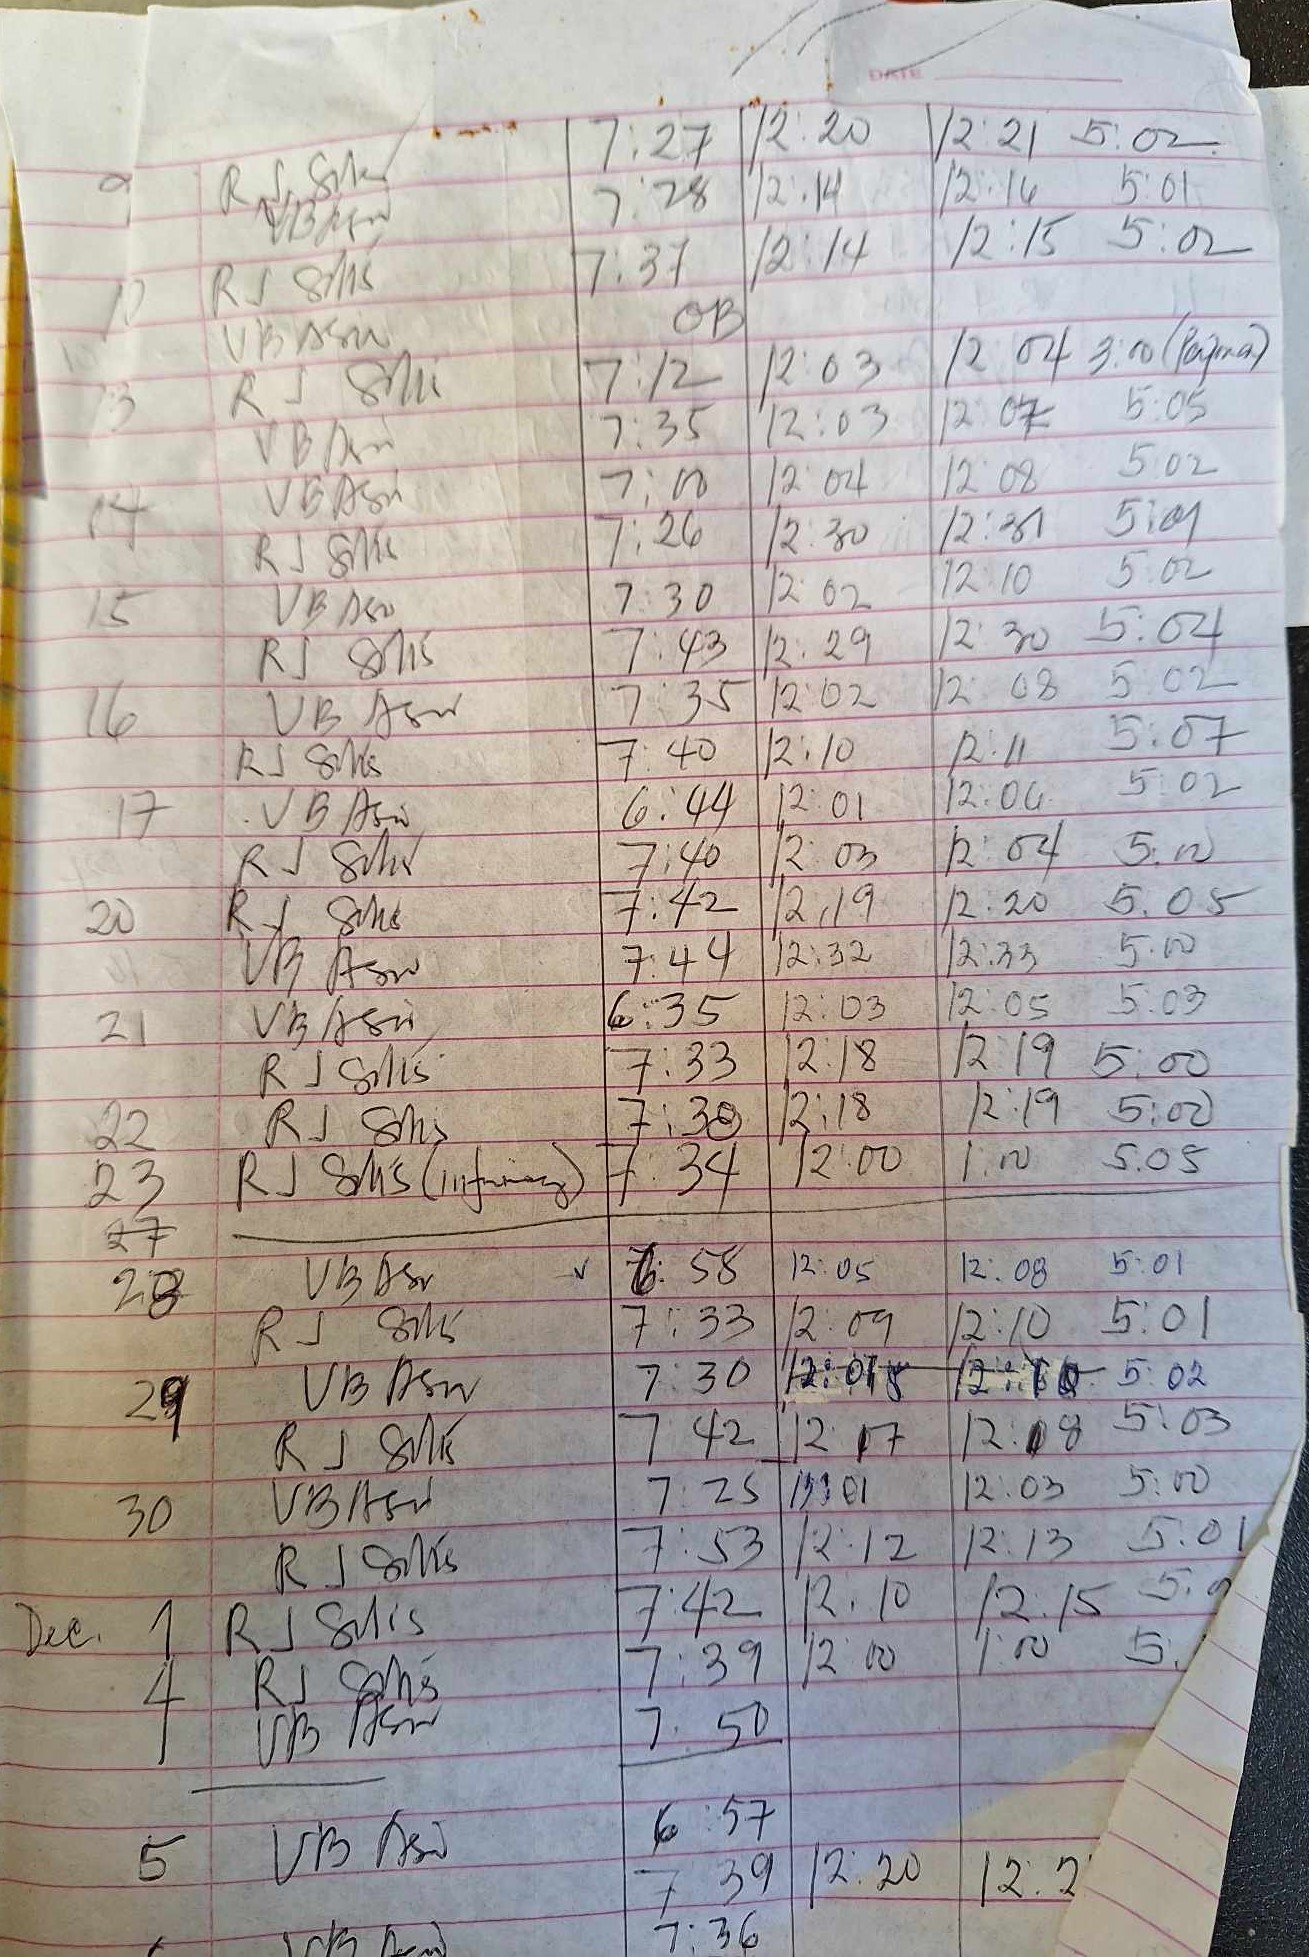 DATE
9 RJ Solis 7:27 12:20 12:21 5:02
VB Asin 7:28 12:14 12:16 5:01
RJ Solis 7:37 12:14 12:15 5:02
VB Asin OB
13 RJ Solis 7:12 12:03 12:04 3:00
VB Asin 7:35 12:03 12:07 5:05
14 VB Asin 7:00 12:04 12:08 5:02
RJ Solis 7:26 12:30 12:31 5:01
15 VB Asin 7:30 12:02 12:10 5:02
RJ Solis 7:43 12:29 12:30 5:04
16 VB Asin 7:35 12:02 12:08 5:02
RJ Solis 7:40 12:10 12:11 5:07
17 VB Asin 6:44 12:01 12:06 5:02
RJ Solis 7:40 12:03 12:04 5:00
20 RJ Solis 7:42 12:19 12:20 5:05
VB Asin 7:44 12:32 12:33 5:00
21 VB Asin 6:35 12:03 12:05 5:03
RJ Solis 7:33 12:18 12:19 5:00
22 RJ Solis 7:30 12:18 12:19 5:00
23 RJ Solis (infirmary) 7:34 12:00 1:00 5:05
27
28 VB Asin 6:58 12:05 12:08 5:01
RJ Solis 7:33 12:09 12:10 5:01
29 VB Asin 7:30 5:02
RJ Solis 7:42 12:17 12:18 5:03
30 VB Asin 7:25 12:03 5:00
RJ Solis 7:53 12:12 12:13 5:01
Dec. 1 RJ Solis 7:42 12:10 12:15
4 RJ Solis 7:39 12:00 1:00
VB Asin 7:50
5 VB Asin 6:57
7:39 12:20
VB Asin 7:36